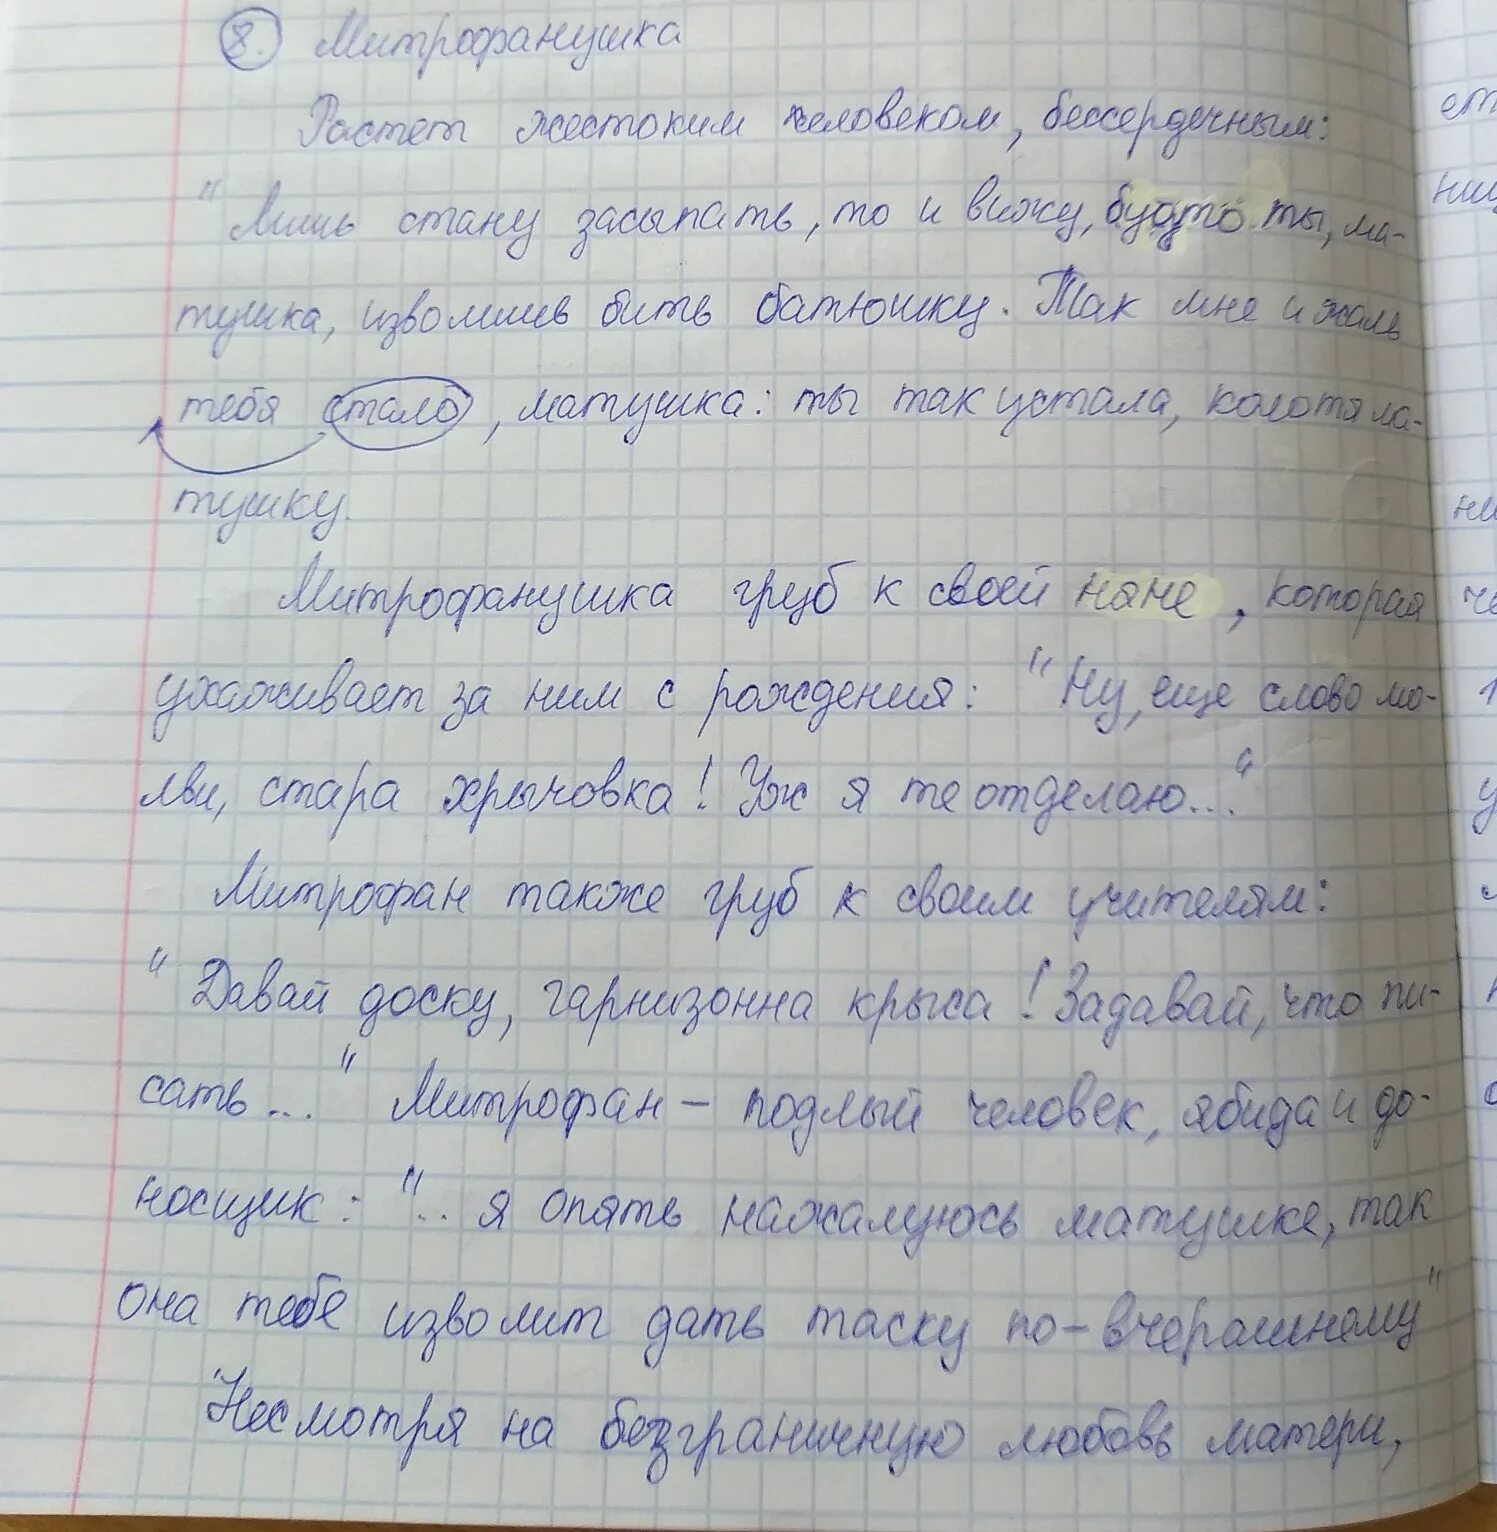 8. Митрофанушка
Растет жестоким человеком, бессердечным:
"Лишь стану засыпать, то и вижу, будто ты, ма-
тушка, изволишь бить батюшку. Так мне и жаль
тебя стало, матушка: ты так устала, колотя ма-
тушку.
Митрофанушка груб к своей няне, которая
ухаживает за ним с рождения: "Ну, еще слово мо-
лви, стара хрычовка! Уж я те отделаю..."
Митрофан также груб к своим учителям:
"Давай доску, гарнизонна крыса! Задавай, что пи-
сать..." Митрофан - подлый человек, ябида и до-
носщик: ".. я опять нажалуюсь матушке, так
она тебе изволит дать таску по-вчерашнему"
Несмотря на безграничную любовь матери,
ст
ниц
ни
че
у